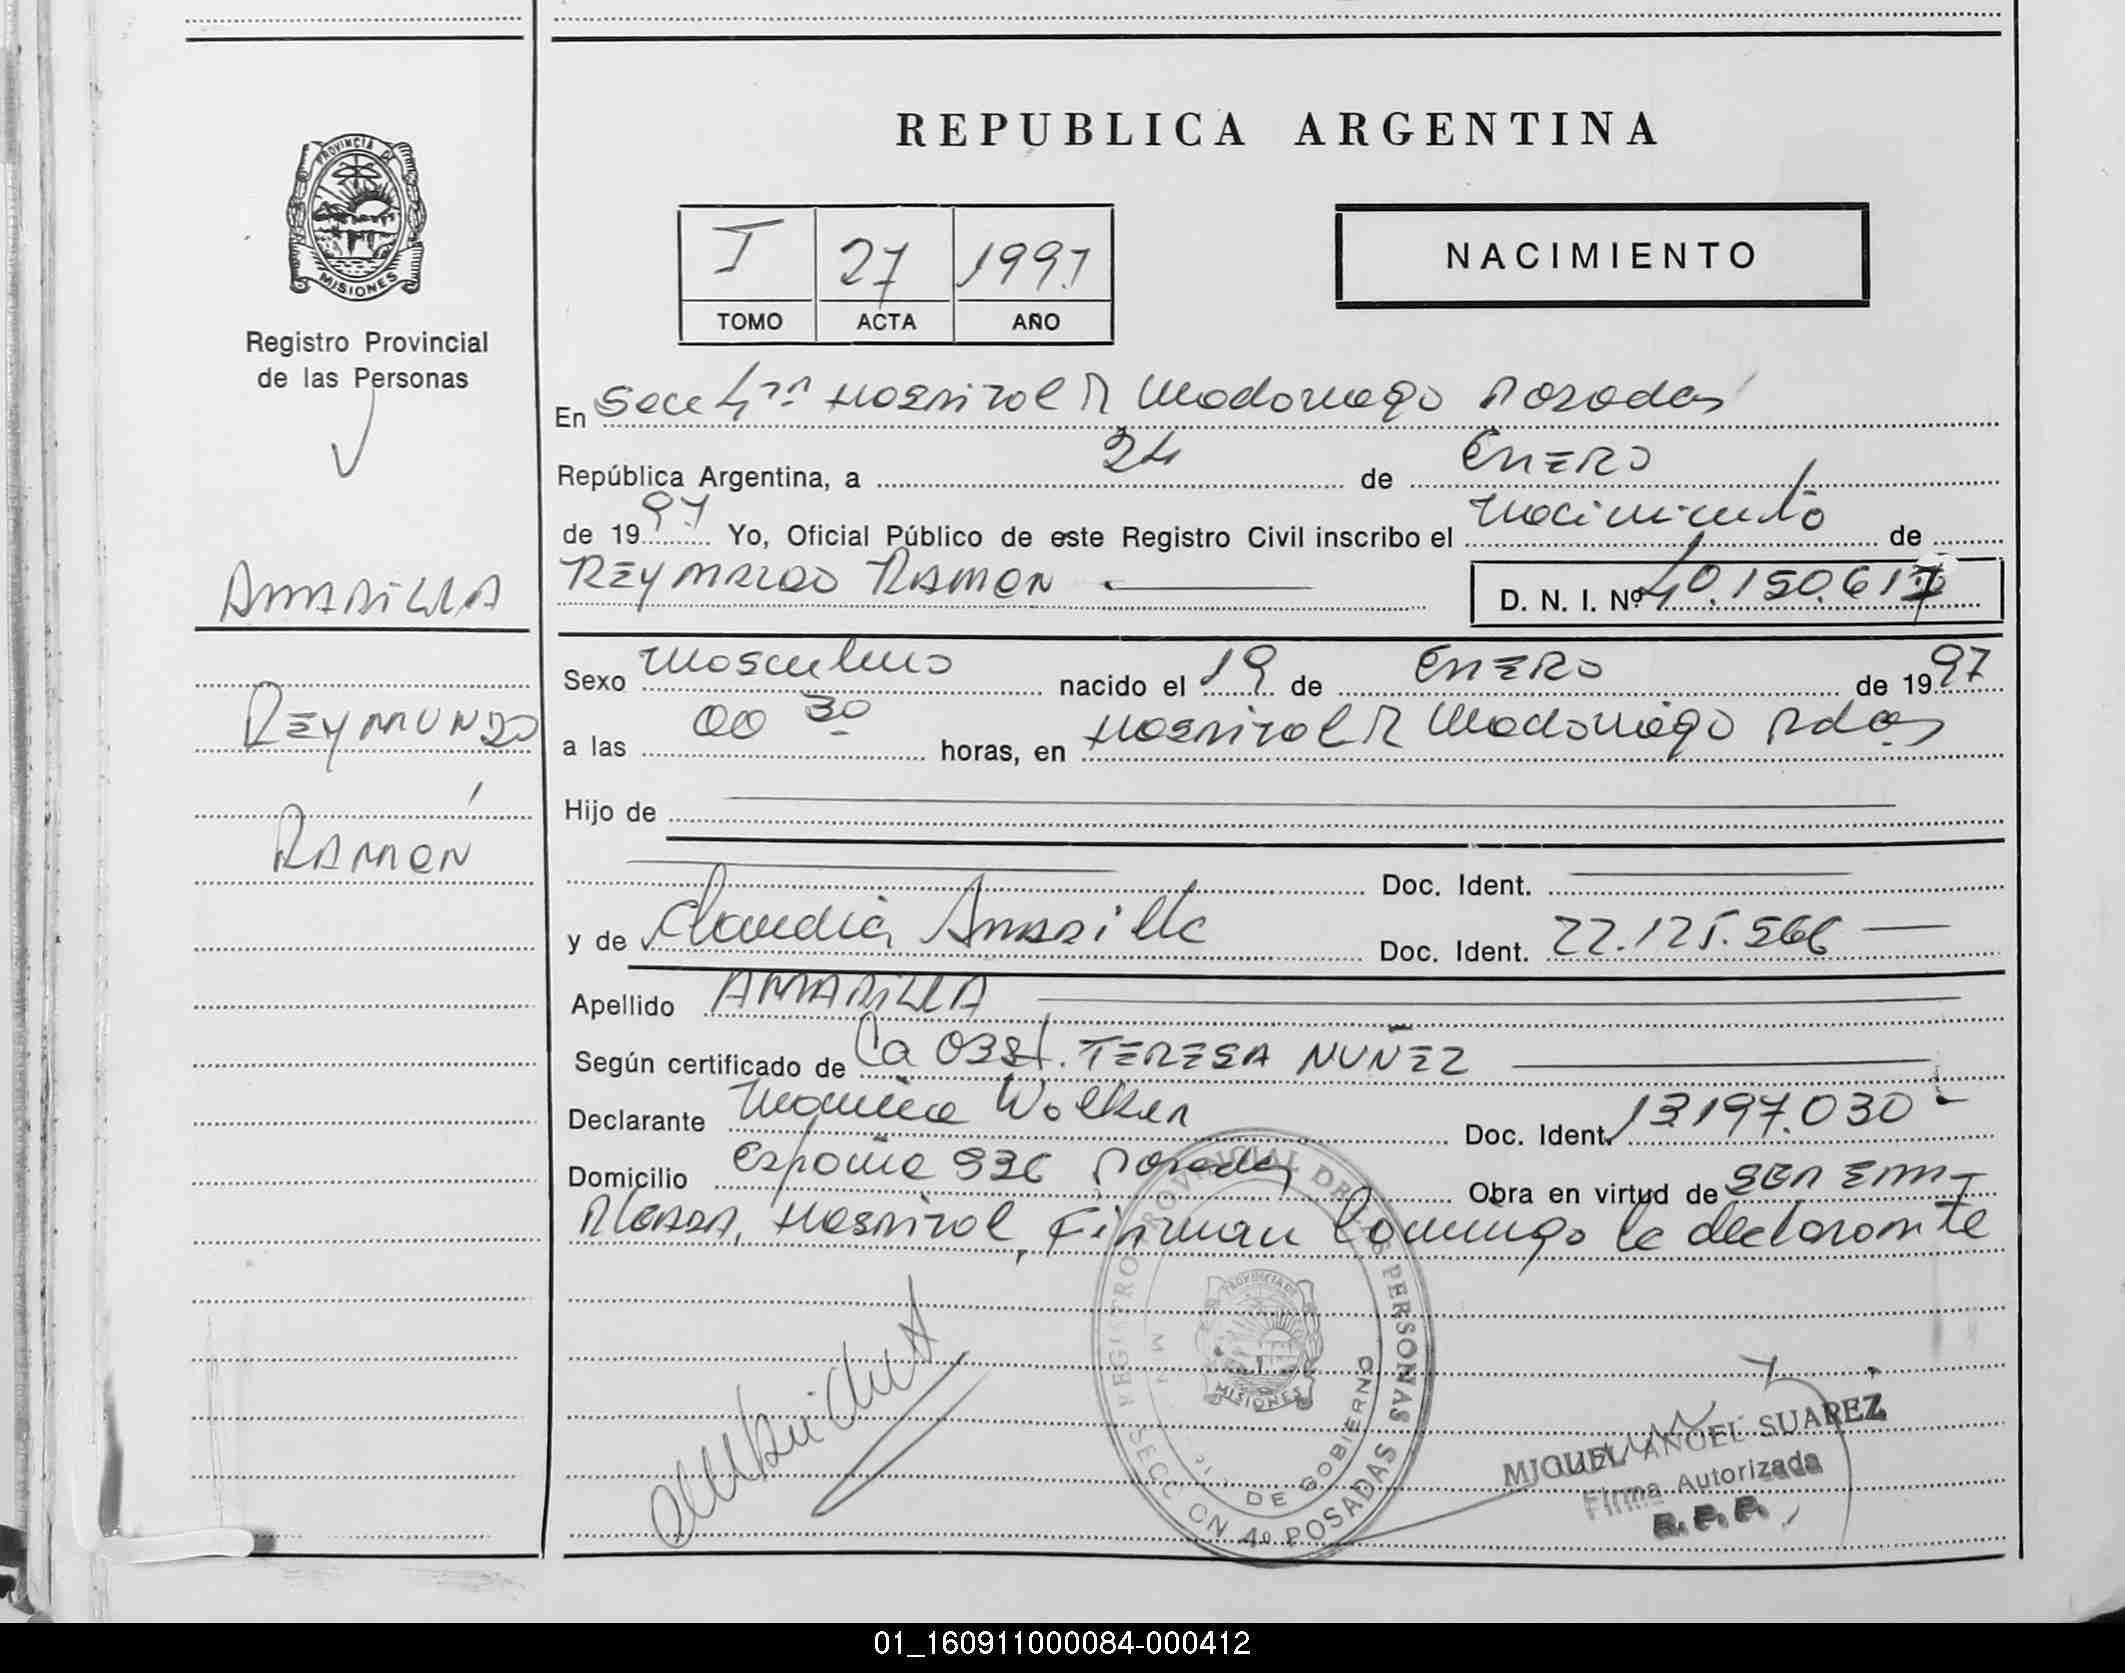 REPUBLICA ARGENTINA
PROVINCIA DE
MISIONES
Registro Provincial
de las Personas
I 27 1997
TOMO ACTA AÑO
NACIMIENTO
En Secc 4ta Hospital R Madariaga Posadas
República Argentina, a 24 de ENERO
de 1997 Yo, Oficial Público de este Registro Civil inscribo el nacimiento de
REYMUNDO RAMON D. N. I. Nº 40.150.617
AMARILLA
REYMUNDO
RAMON
Sexo masculino nacido el 19 de ENERO de 1997
a las 00 30 horas, en Hospital R Madariaga Pdas
Hijo de
Doc. Ident.
y de Claudia Amarilla Doc. Ident. 22.125.566
Apellido AMARILLA
Según certificado de la OBST. TERESA NUÑEZ
Declarante Walker Doc. Ident. 13197.030
Domicilio España 936 Posadas Obra en virtud de SER EM-
PLEADA, Hospital, Firman Conmigo la declarante
REGISTRO PROVINCIAL DE LAS PERSONAS
SECCION 4º POSADAS
DE GOBIERNO
PROVINCIA DE
MISIONES
MIGUEL ANGEL SUAREZ
Firma Autorizada
R. P. P.
01_160911000084-000412